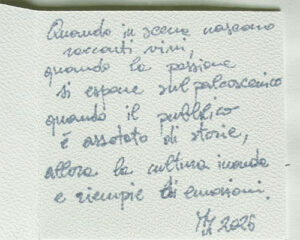 Quando in scena nascono
racconti vivi,
quando la passione
si espone sul palcoscenico
quando il pubblico
è assetato di storie,
allora la cultura inonda
e riempie di emozioni.
2025